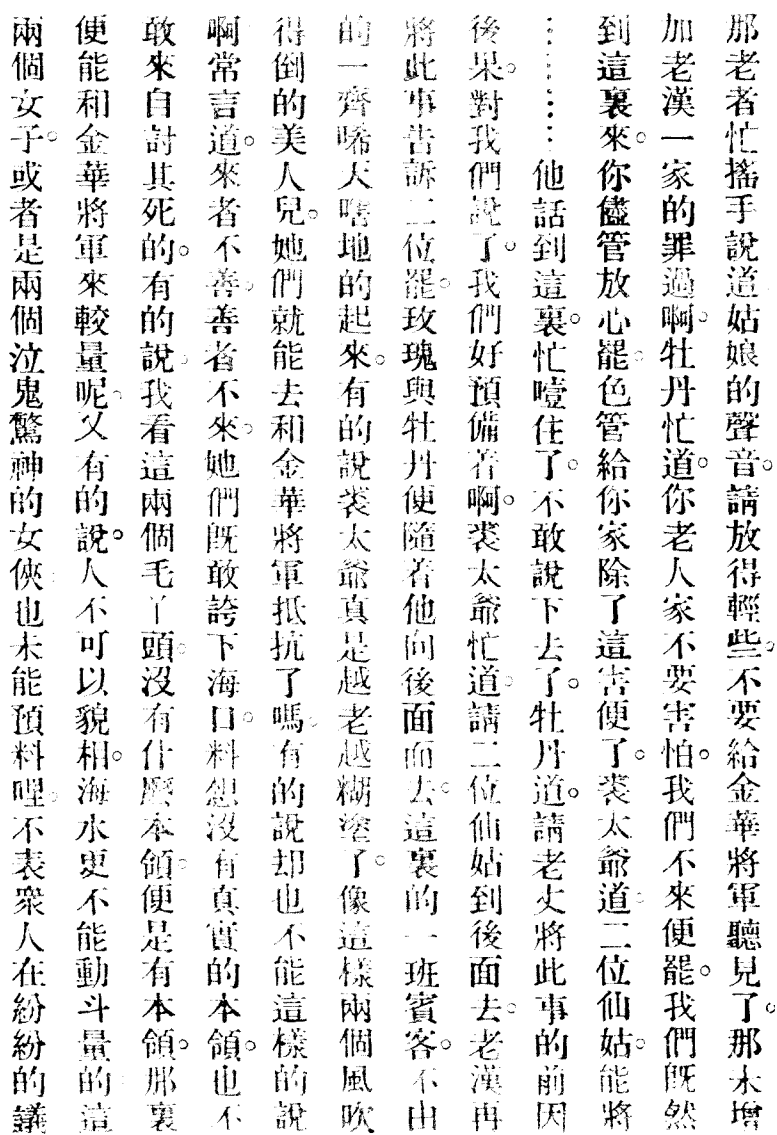 那老者忙搖手說道姑娘的聲音。請放得輕些。不要給金華將軍聽見了。那末增
加老漢一家的罪過啊。牡丹忙道。你老人家不要害怕。我們不來便罷。我們既然
到這裏來。你儘管放心罷。包管給你家除了這害便了。裘太爺道。二位仙姑。能將
⋯⋯他話到這裏。忙噎住了。不敢說下去了。牡丹道。請老丈將此事的前因
後果。對我們說了。我們好預備着啊。裘太爺忙道。請二位仙姑到後面去。老漢再
將此事告訴二位罷。玫瑰與牡丹便隨着他向後面而去。這裏的一班賓客。不由
的一齊唏天嘻地的起來。有的說裘太爺真是越老越糊塗了。像這樣兩個風吹
得倒的美人兒。她們就能去和金華將軍抵抗了嗎。有的說却也不能這樣的說
啊常言道。來者不善。善者不來。她們既敢誇下海口。料想沒有真實的本領。也不
敢來自討其死的。有的說。我看這兩個毛丫頭。沒有什麼本領。便是有本領。那裏
便能和金華將軍來較量呢。又有的說。人不可以貌相。海水更不能動斗量的。這
兩個女子。或者是兩個泣鬼驚神的女俠。也未能預料哩。不表衆人在紛紛的議